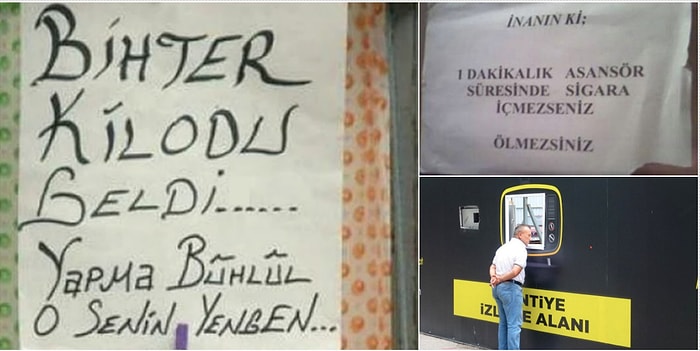 BİHTER
KİLODU
GELDİ......
YAPMA BÜHLÜL
O SENİN YENGEN...
İNANIN Kİ;
1 DAKİKALIK ASANSÖR
SÜRESİNDE SİGARA
İÇMEZSENİZ
ÖLMEZSİNİZ
NTİYE
İZL E ALANI